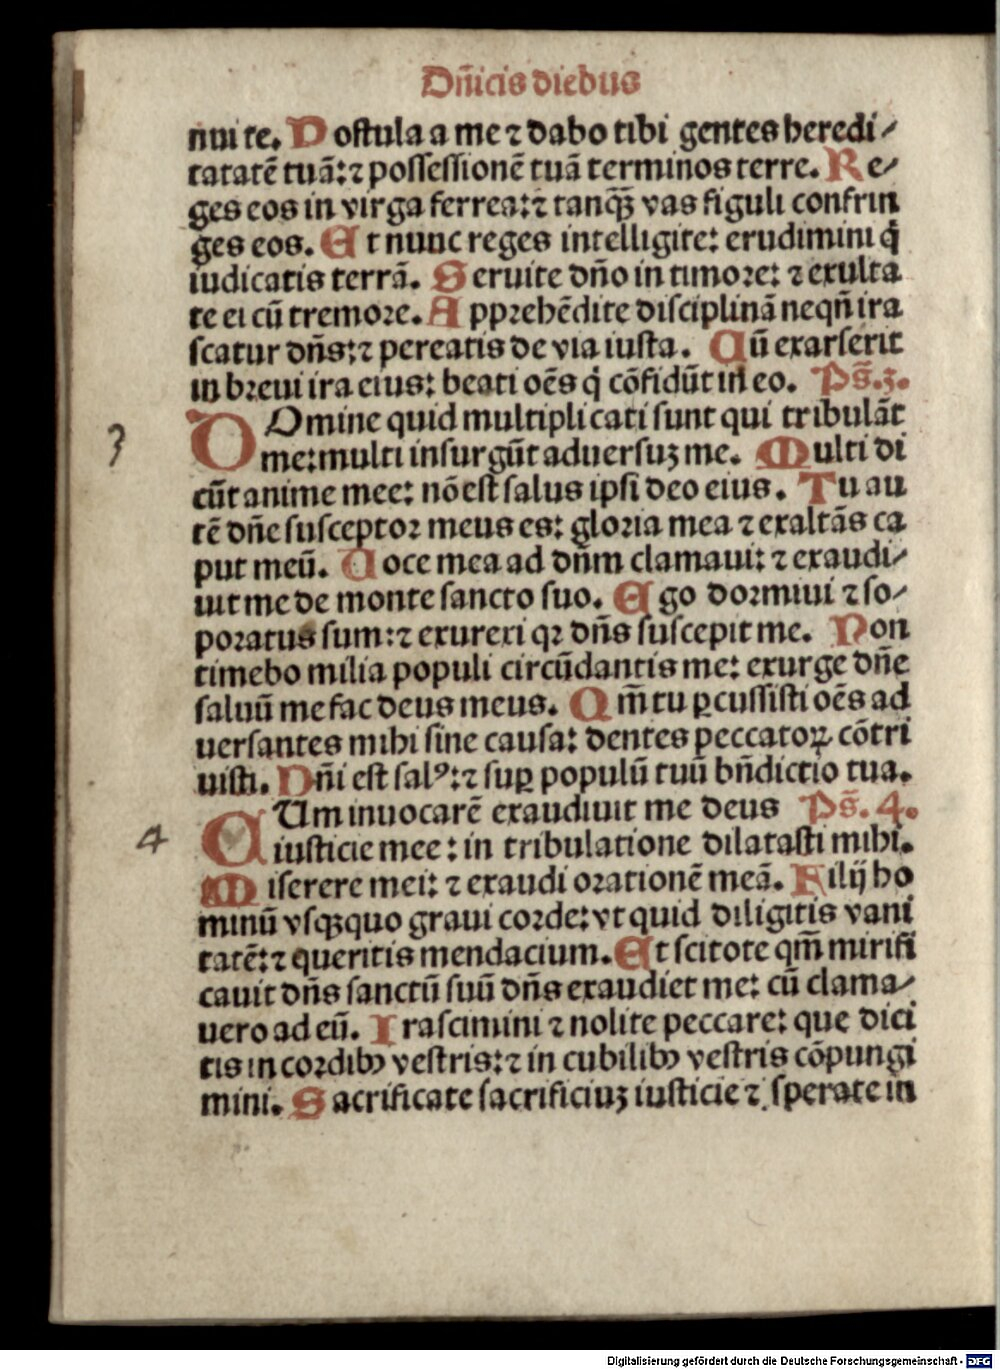 Dñicis diebus
nui te. Postula a me ⁊ dabo tibi gentes heredi⸗
tatatē tuā: ⁊ possessionē tuā terminos terre. Re⸗
ges eos in virga ferrea: ⁊ tanqꝫ vas figuli confrin
ges eos. Et nunc reges intelligite: erudimini q̇
iudicatis terrā. Seruite dño in timore: ⁊ exulta
te ei cū tremore. Apprehēdite disciplinā neqñ ira
scatur dñs: ⁊ pereatis de via iusta. Cū exarserit
in breui ira eius: beati oēs q̇ cōfidūt in eo. Ps̄. 3.
DOmine quid multiplicati sunt qui tribulāt
3
me: multi insurgūt aduersuꝫ me. Multi di
cūt anime mee: nō est salus ipsi deo eius. Tu au
tē dñe susceptor meus es: gloria mea ⁊ exaltās ca
put meū. Uoce mea ad dñm clamaui: ⁊ exaudi⸗
uit me de monte sancto suo. Ego dormiui ⁊ so⸗
poratus sum: ⁊ exurexi qꝛ dñs suscepit me. Non
timebo milia populi circūdantis me: exurge dñe
saluū me fac deus meus. Qm̄ tu ꝑcussisti oēs ad
uersantes mihi sine causa: dentes peccatoꝝ cōtri
uisti. Dñi est salꝰ: ⁊ suꝑ populū tuū bñdictio tua.
CUm inuocarē exaudiuit me deus Ps̄. 4.
4
iusticie mee: in tribulatione dilatasti mihi.
Miserere mei: ⁊ exaudi orationē meā. Filij ho
minū vsqꝫquo graui corde: vt quid diligitis vani
tatē: ⁊ queritis mendacium. Et scitote qm̄ mirifi
cauit dñs sanctū suū dñs exaudiet me: cū clama⸗
uero ad eū. Irascimini ⁊ nolite peccare: que dici
tis in cordibꝰ vestris: ⁊ in cubilibꝰ vestris cōpungi
mini. Sacrificate sacrificiuꝫ iusticie ⁊ sperate in
Digitalisierung gefördert durch die Deutsche Forschungsgemeinschaft - DFG